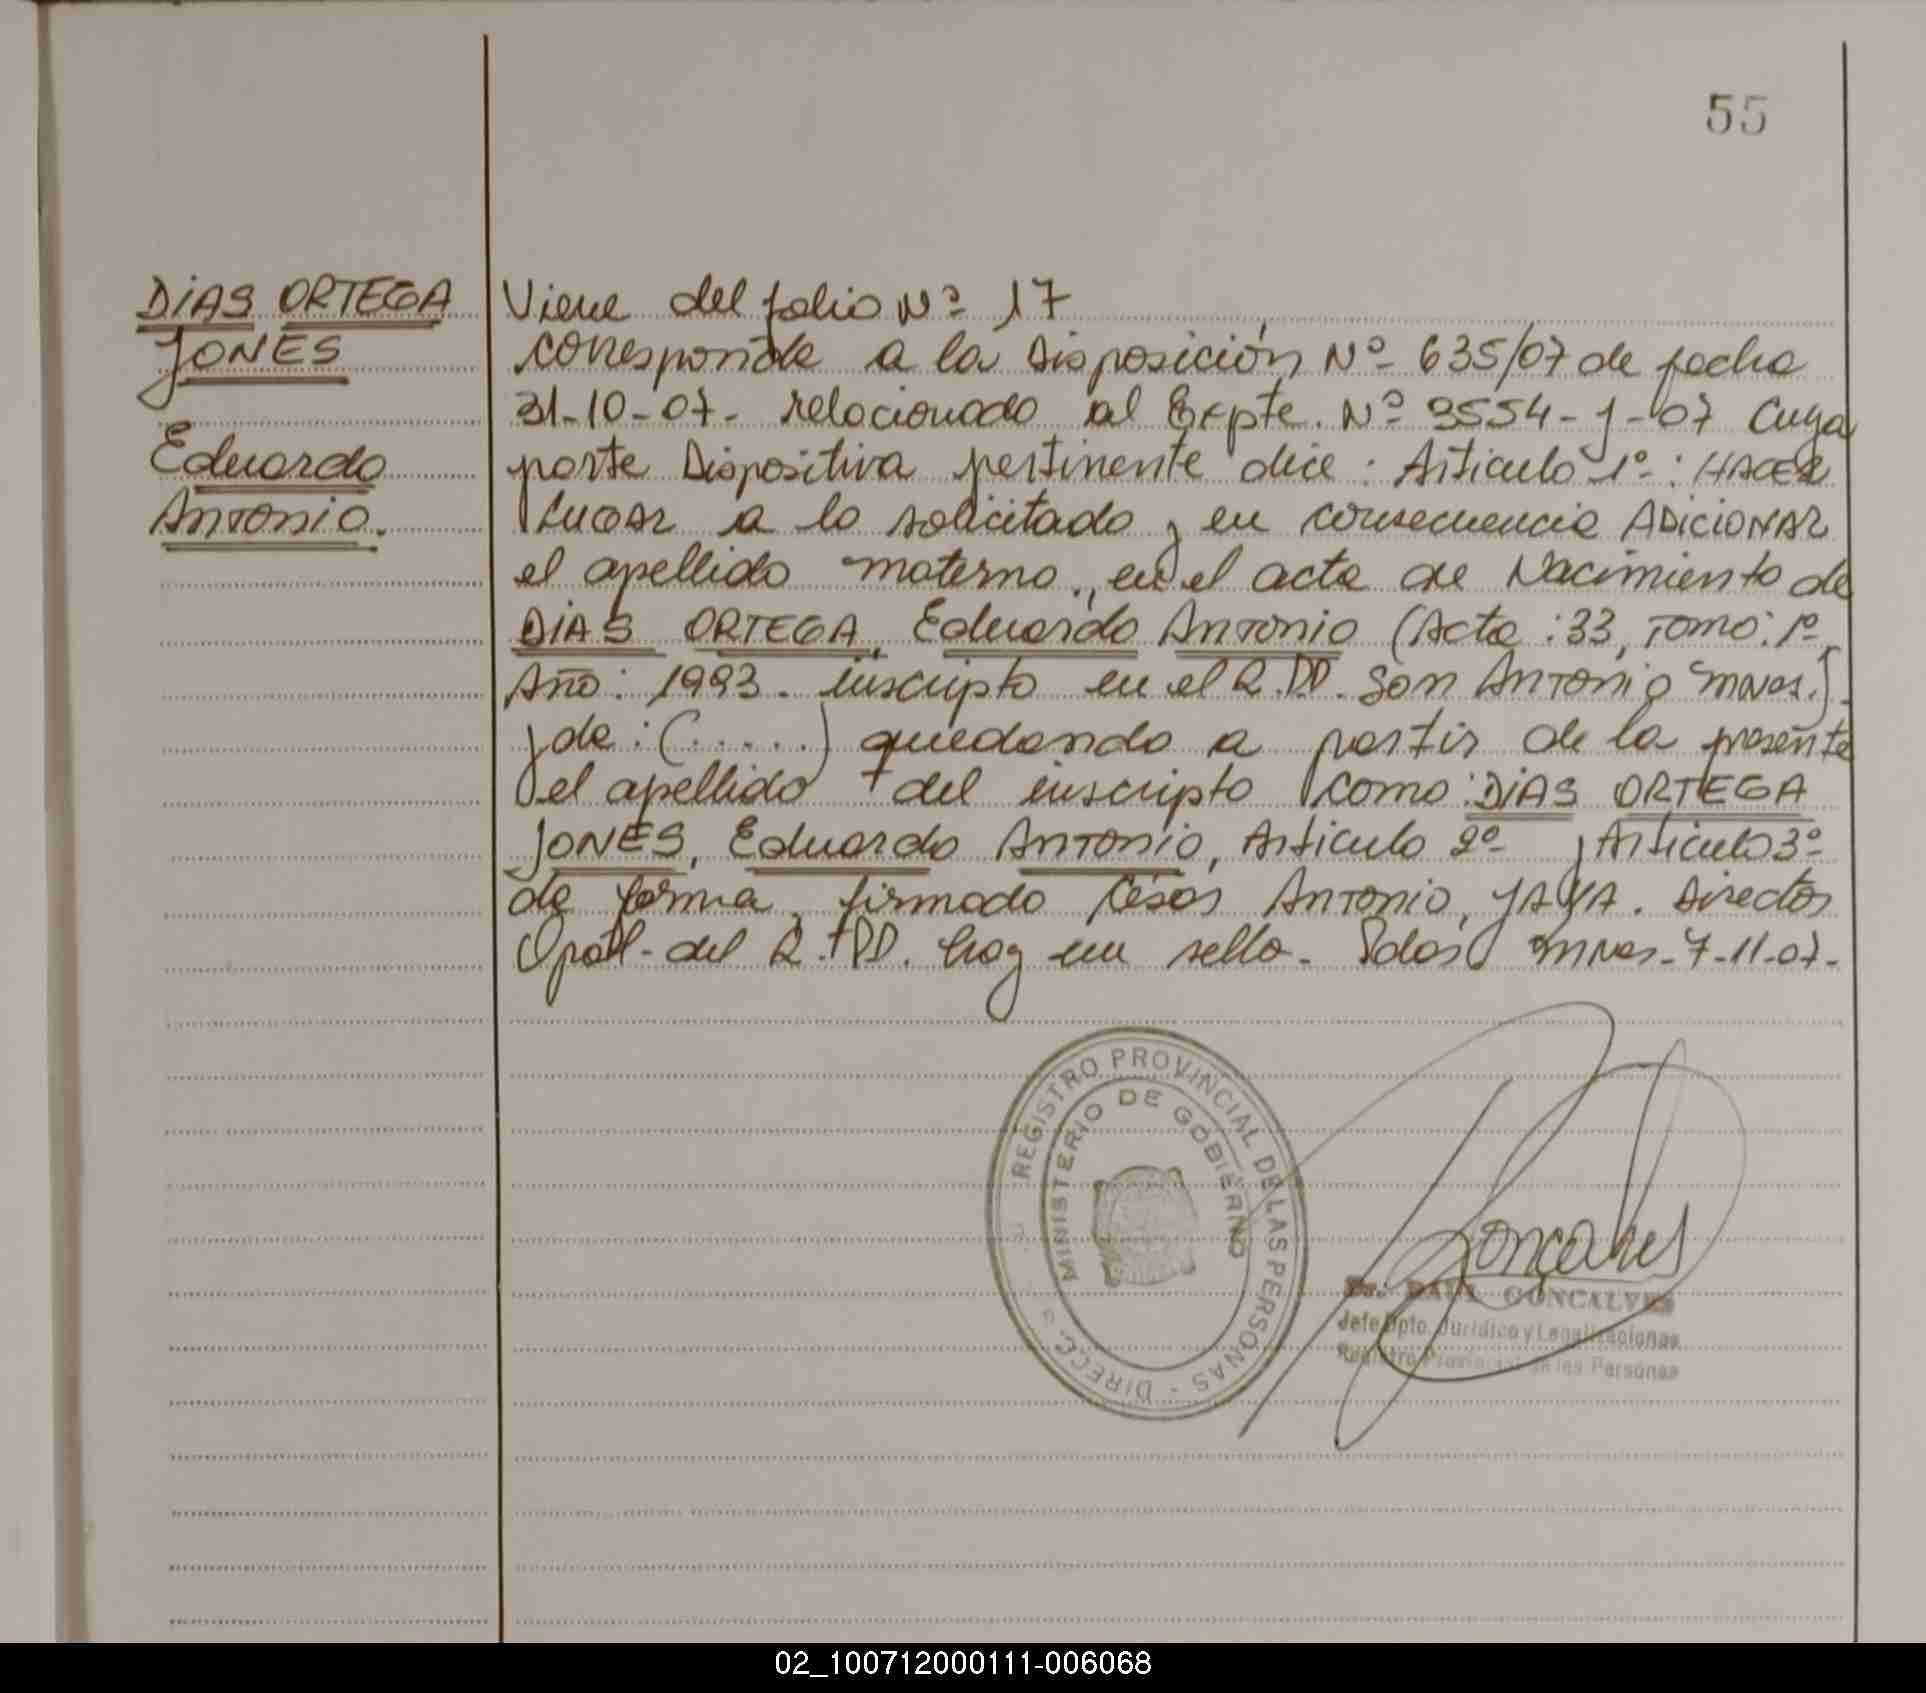 55
DiAS ORTEGA
JONES
Eduardo
Antonio.
Viene del folio Nº 17
corresponde a la Disposición Nº 635/07 de fecha
31-10-07- relacionado al Expte. Nº 3554-J-07 Cuya
parte Dispositiva pertinente dice: Artículo 1º: HACER
LUGAR a lo solicitado y en consecuencia ADICIONAR
el apellido materno, en el acta de Nacimiento de
DIAS ORTEGA, Eduardo Antonio (Acta: 33, Tomo: 1º,
Año: 1993. inscripto en el R.PP. San Antonio Mnes.)
y de: (.....) quedando a partir de la presente
el apellido del inscripto como: DIAS ORTEGA
JONES, Eduardo Antonio, Artículo 2º y Artículo 3º
de forma, firmado César Antonio, YAYA. Director
Gral. del R.PP. hay un sello. Pdas Mnes-7-11-07-
REGISTRO PROVINCIAL DE LAS PERSONAS - DIRECC
MINISTERIO DE GOBIERNO
Gonçalves
Dr. RAUL GONCALVES
Jefe Dpto. Jurídico y Legalizaciones
Registro Provincial de las Personas
02_100712000111-006068